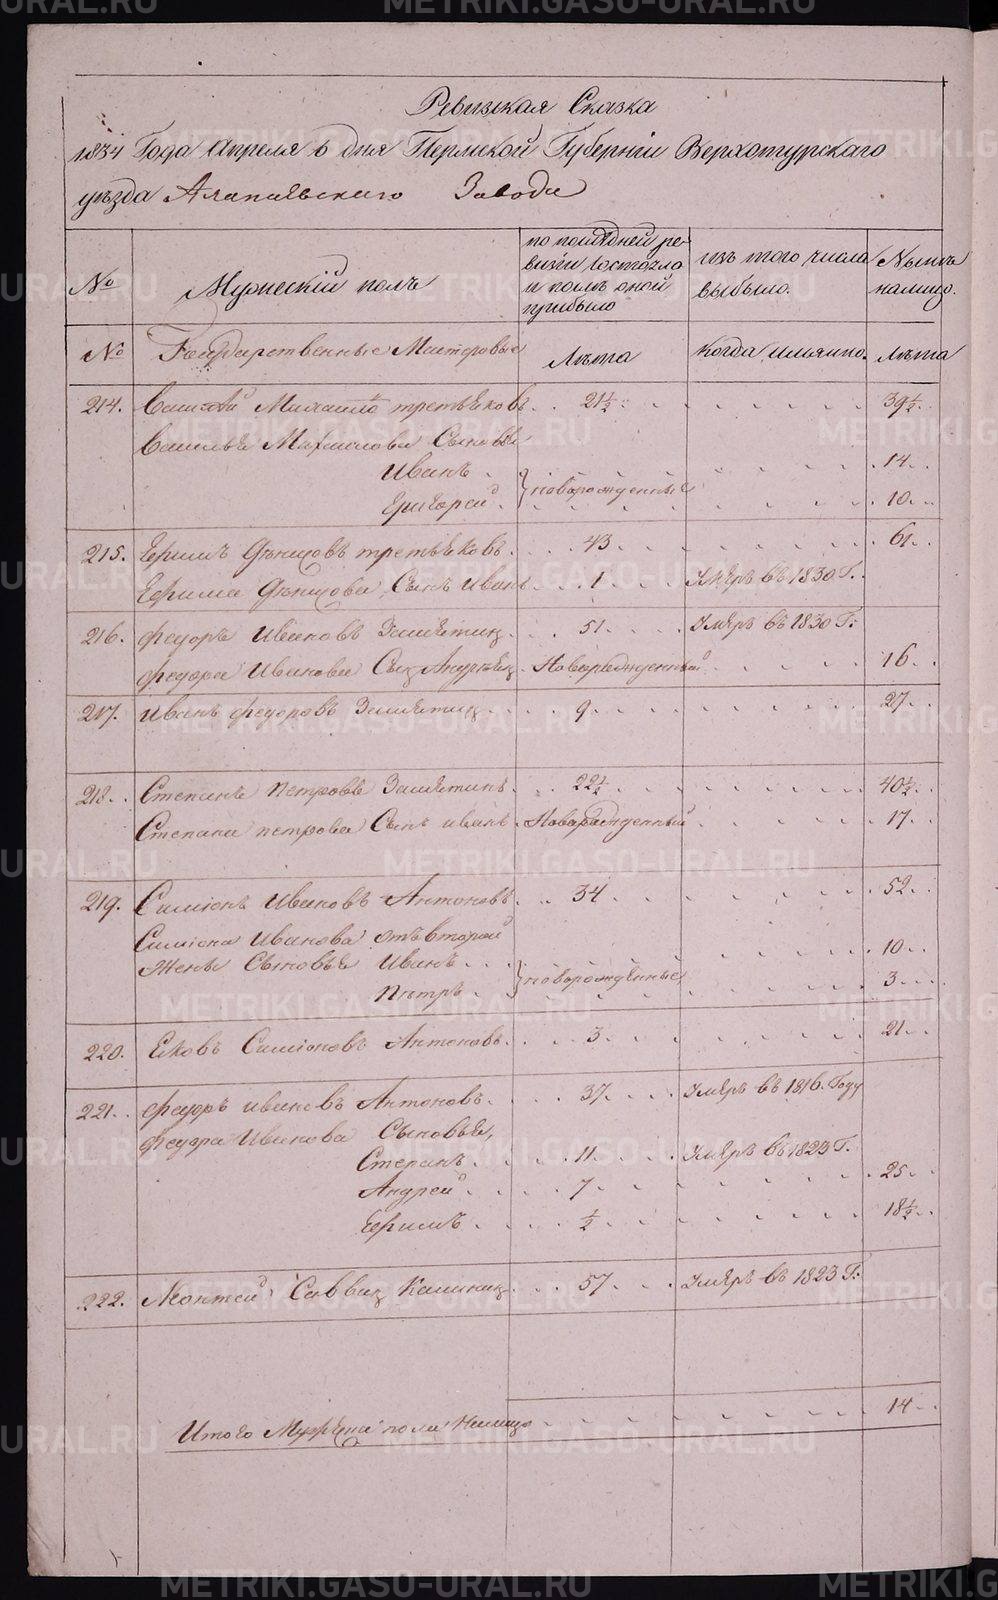 Ревизская Сказка
1834 Года Апреля 6 дня Пермской Губернiи Верхотурскаго
уѣзда Алапаевскаго Завода
№ Мужескiй полъ по последней ревизiи состояло и послѣ оной прибыло изъ того числа выбыло. Нынѣ налицо.
№ Государственные Мастеровые Лѣта когда имянно. Лѣта
214. Василiй Михаилов третьяковъ 21½ 39½
Василья Михаилова Сыновья
Иванъ } новорожденные 14
Григорей 10
215. Ефимъ третьяковъ 43 61
Ефима Сынъ Иванъ 1 Умеръ въ 1830 Г.
216. Федоръ Ивановъ Замятин 51 Умеръ въ 1830 Г:
федора Иванова Сын Андреян Новорожденный 16
217. Иванъ федоровъ Замятин 9 27
218. Степанъ петровъ Замятинъ 22½ 40½
Степана петрова Сынъ иванъ Новорожденный 17
219. Симионъ Ивановъ Антоновъ 34 52
Симиона Иванова отъ второй
жены Сыновья Иванъ } новорожденные 10
Петръ 3
220. Яковъ Симионовъ Антоновъ 3 21
221. федоръ ивановъ Антоновъ 37 Умеръ въ 1816. Году
федора Иванова Сыновья,
Степанъ 11 Умеръ въ 1823 Г.
Андрей 7 25
Ефимъ ½ 18½
222. Саввин Калинин 57 Умеръ въ 1823 Г:
Итого Мужеска пола Налицо 14
METRIKI.GASO-URAL.RU